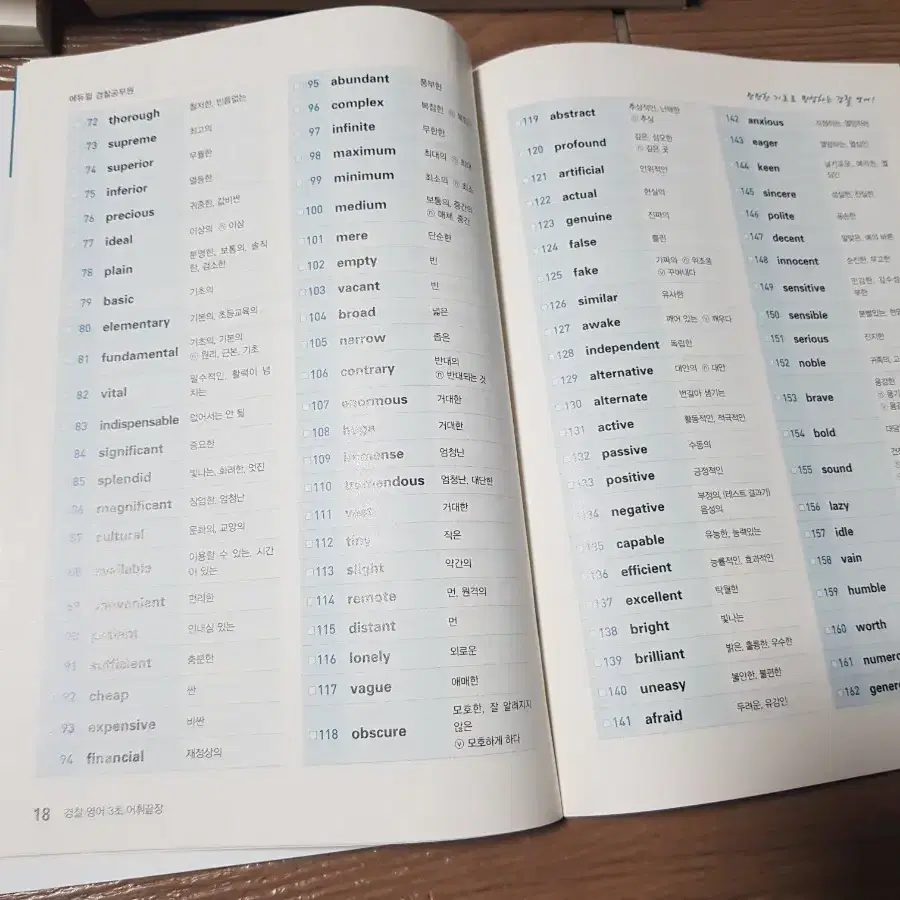 에듀윌 경찰공무원
72 thorough 철저한, 빈틈없는
73 supreme 최고의
74 superior 우월한
75 inferior 열등한
76 precious 귀중한, 값비싼
77 ideal 이상의 ⓝ 이상
78 plain 분명한, 보통의, 솔직
한, 검소한
79 basic 기초의
80 elementary 기본의, 초등교육의
81 fundamental 기초의, 기본의
ⓝ 원리, 근본, 기초
82 vital 필수적인, 활력이 넘
치는
83 indispensable 없어서는 안 될
84 significant 중요한
85 splendid 빛나는, 화려한, 멋진
86 magnificant 장엄한, 엄청난
87 cultural 문화의, 교양의
88 available 이용할 수 있는, 시간
이 있는
89 convenient 편리한
90 patient 인내심 있는
91 sufficient 충분한
92 cheap 싼
93 expensive 비싼
94 financial 재정상의
95 abundant 풍부한
96 complex 복잡한
97 infinite 무한한
98 maximum 최대의 ⓝ 최대
99 minimum 최소의 ⓝ 최소
100 medium 보통의, 중간의
ⓝ 매체, 중간
101 mere 단순한
102 empty 빈
103 vacant 빈
104 broad 넓은
105 narrow 좁은
106 contrary 반대의
ⓝ 반대되는 것
107 enormous 거대한
108 huge 거대한
109 immense 엄청난
110 tremendous 엄청난, 대단한
111 vast 거대한
112 tiny 작은
113 slight 약간의
114 remote 먼, 원격의
115 distant 먼
116 lonely 외로운
117 vague 애매한
118 obscure 모호한, 잘 알려지지
않은
ⓥ 모호하게 하다
18 경찰 영어 3초 어휘끝장
119 abstract 추상적인, 난해한
ⓝ 추상
120 profound 깊은, 심오한
ⓝ 깊은 곳
121 artificial 인위적인
122 actual 현실의
123 genuine 진짜의
124 false 틀린
125 fake 가짜의 ⓝ 위조품
ⓥ 꾸며내다
126 similar 유사한
127 awake 깨어 있는 ⓥ 깨우다
128 independent 독립한
129 alternative 대안의 ⓝ 대안
130 alternate 번갈아 생기는
131 active 활동적인, 적극적인
132 passive 수동의
133 positive 긍정적인
134 negative 부정의, (테스트 결과가)
음성의
135 capable 유능한, 능력있는
136 efficient 능률적인, 효과적인
137 excellent 탁월한
138 bright 빛나는
139 brilliant 밝은, 훌륭한, 우수한
140 uneasy 불안한, 불편한
141 afraid 두려운, 유감인
142 anxious 걱정하는, 열망하는
143 eager 열망하는, 열심인
144 keen 날카로운, 예리한, 열
심인
145 sincere 성실한, 진실한
146 polite 공손한
147 decent 알맞은, 예의 바른
148 innocent 순진한, 무고한
149 sensitive 민감한, 감수성
150 sensible 분별있는,
151 serious 진지한
152 noble 귀족의,
153 brave 용감한
154 bold
155 sound
156 lazy
157 idle
158 vain
159 humble
160 worth
161
162